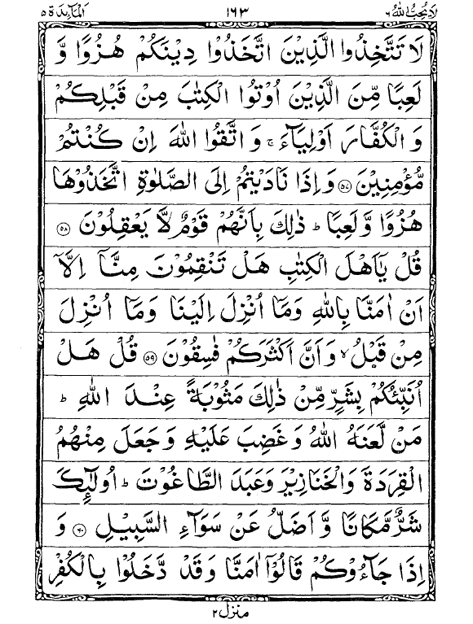 المآئدة ٥ ١٦٣ لا يحب الله ٦
لَا تَتَّخِذُوا الَّذِيْنَ اتَّخَذُوْا دِيْنَكُمْ هُزُوًا وَّ
لَعِبًا مِّنَ الَّذِيْنَ اُوْتُوا الْكِتٰبَ مِنْ قَبْلِكُمْ
وَ الْكُفَّارَ اَوْلِيَآءَ ۚ وَ اتَّقُوا اللّٰهَ اِنْ كُنْتُمْ
مُّؤْمِنِيْنَ ﴿٥٧﴾ وَاِذَا نَادَيْتُمْ اِلَى الصَّلٰوةِ اتَّخَذُوْهَا
هُزُوًا وَّ لَعِبًا ؕ ذٰلِكَ بِاَنَّهُمْ قَوْمٌ لَّا يَعْقِلُوْنَ ﴿٥٨﴾
قُلْ يٰۤاَهْلَ الْكِتٰبِ هَلْ تَنْقِمُوْنَ مِنَّاۤ اِلَّاۤ
اَنْ اٰمَنَّا بِاللّٰهِ وَمَاۤ اُنْزِلَ اِلَيْنَا وَمَاۤ اُنْزِلَ
مِنْ قَبْلُ ۙ وَاَنَّ اَكْثَرَكُمْ فٰسِقُوْنَ ﴿٥٩﴾ قُلْ هَلْ
اُنَبِّئُكُمْ بِشَرٍّ مِّنْ ذٰلِكَ مَثُوْبَةً عِنْدَ اللّٰهِ ؕ
مَنْ لَّعَنَهُ اللّٰهُ وَ غَضِبَ عَلَيْهِ وَ جَعَلَ مِنْهُمُ
الْقِرَدَةَ وَالْخَنَازِيْرَ وَعَبَدَ الطَّاغُوْتَ ؕ اُولٰٓئِكَ
شَرٌّ مَّكَانًا وَّ اَضَلُّ عَنْ سَوَآءِ السَّبِيْلِ ﴿٦٠﴾ وَ
اِذَا جَآءُوْكُمْ قَالُوْۤا اٰمَنَّا وَ قَدْ دَّخَلُوْا بِالْكُفْرِ
منزل ٢